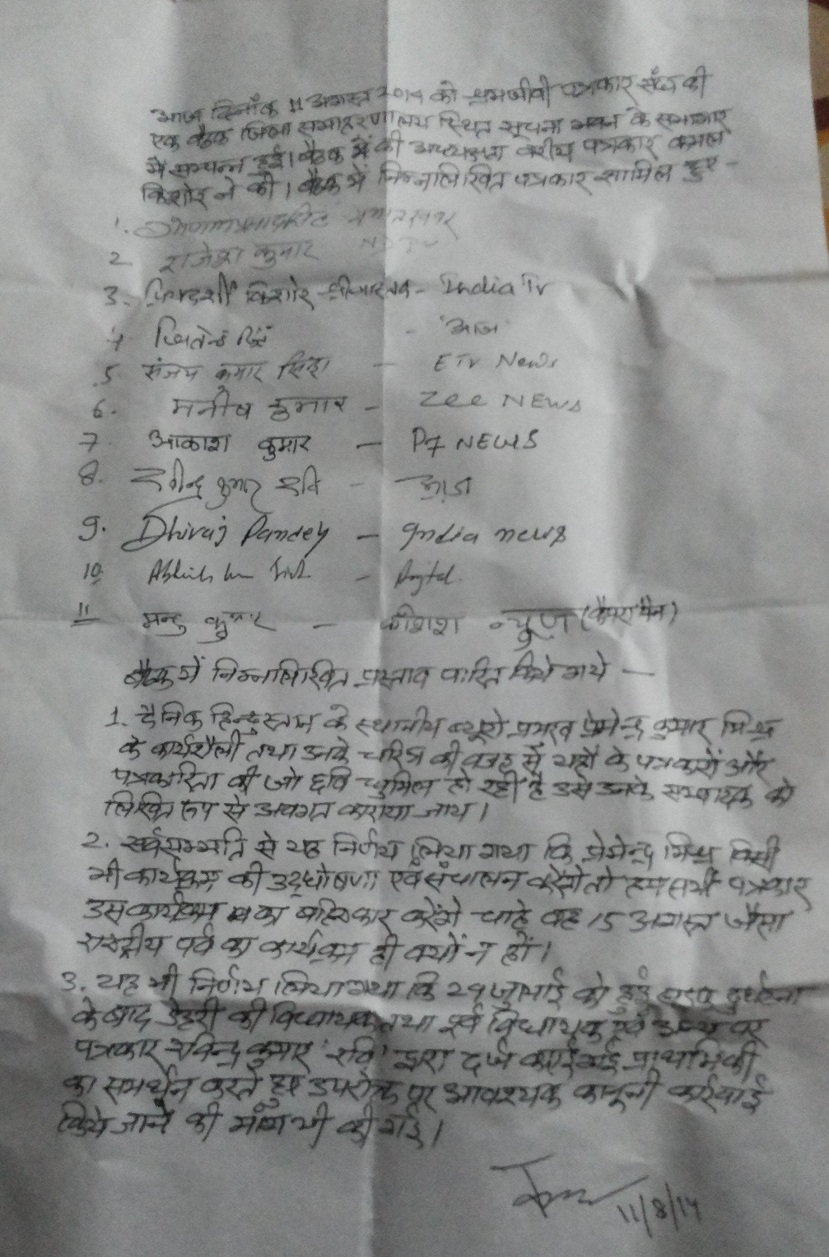 आज दिनाँक 11 अगस्त 2014 को श्रमजीवी पत्रकार संघ की
एक बैठक जिला समाहरणालय स्थित सूचना भवन के सभागार
में सम्पन्न हुई। बैठक में की अध्यक्षता वरीय पत्रकार कमल
किशोर ने की। बैठक में निम्नलिखित पत्रकार शामिल हुए -
1.
2 राजेश कुमार NDTV
3. प्रियदर्शी किशोर - India TV
4 जितेन्द्र - 'आज'
5. संजय कुमार सिंहा - ETV News
6. मनीष कुमार - Zee NEWS
7. आकाश कुमार - P7 NEWS
8. रवीन्द्र कुमार रवि - आज
9. Dhiraj Pandey - India news
10.
11 मन्टु कुमार - कशिश न्यूज़ (कैमरा मैन)
बैठक में निम्नलिखित प्रस्ताव पारित किये गये -
1. दैनिक हिन्दुस्तान के स्थानीय ब्यूरो प्रमुख प्रेमेन्द्र कुमार मिश्र
के कार्यशैली तथा उनके चरित्र की वजह से यहाँ के पत्रकारों और
पत्रकारिता की जो छवि धुमिल हो रही है उसे उनके सम्पादक को
लिखित रूप से अवगत कराया जाय।
2. सर्वसम्मति से यह निर्णय लिया गया कि प्रेमेन्द्र मिश्र किसी
भी कार्यक्रम की उद्घोषणा एवं संचालन करेंगे तो हम सभी पत्रकार
उस कार्यक्रम का बहिष्कार करेंगे चाहे वह 15 अगस्त जैसा
राष्ट्रीय पर्व का कार्यक्रम ही क्यों न हों।
3. यह भी निर्णय लिया गया कि 29 जुलाई को हुई सड़क दुर्घटना
के बाद डेहरी की विधायक तथा पूर्व विधायक एवं अन्य पर
पत्रकार रविन्द्र कुमार 'रवि' द्वारा दर्ज कराई गई प्राथमिकी
का समर्थन करते हुए उपरोक्त पर आवश्यक कानूनी कार्रवाई
किये जाने की माँग भी की गई।
11/8/14